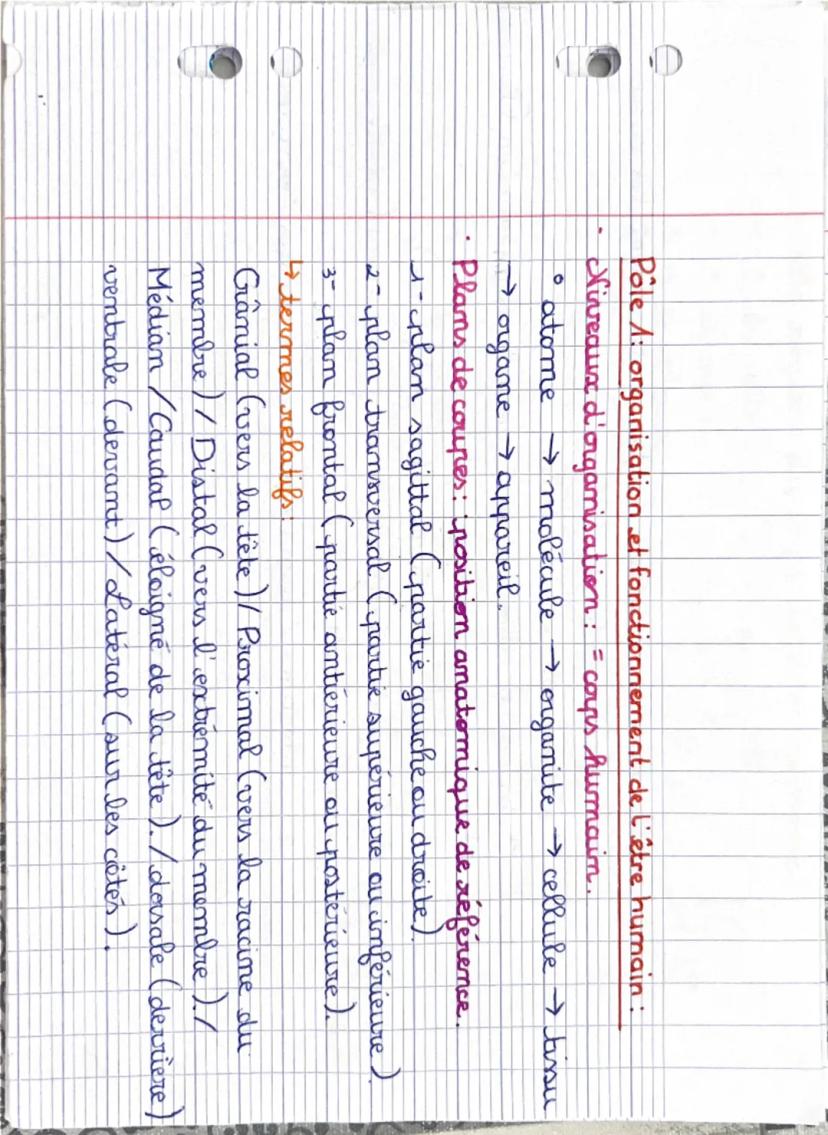 Pôle 1: organisation et fonctionnement de l'être humain :
· Niveaux d'organisation : = corps humain.
° atome → molécule → organite → cellule → tissu
→ organe → appareil.
· Plans de coupes : position anatomique de référence.
1- plan sagittal (partie gauche ou droite).
2- plan transversal (partie supérieure ou inférieure)
3- plan frontal (partie antérieure ou postérieure).
↳ termes relatifs :
Crânial (vers la tête) / Proximal (vers la racine du
membre) / Distal (vers l'extrémité du membre). /
Médian / Caudal (éloigné de la tête). / dorsale (derrière)
ventrale (devant) / Latéral (sur les côtés).